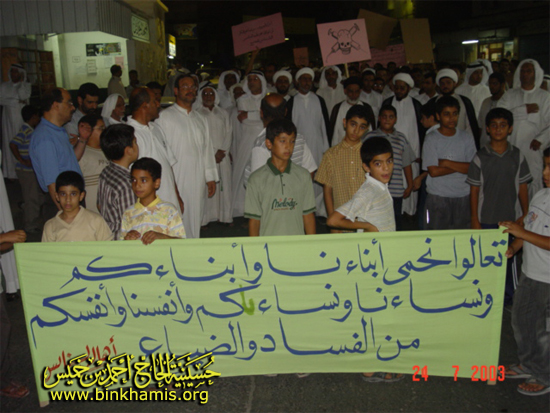 تعالوا نحمي أبناءنا وأبناءكم
ونساءنا ونساءكم وأنفسنا وأنفسكم
من الفساد والضياع
حسينية الحاج أحمد بن خميس
www.binkhamis.org
24 7 2003